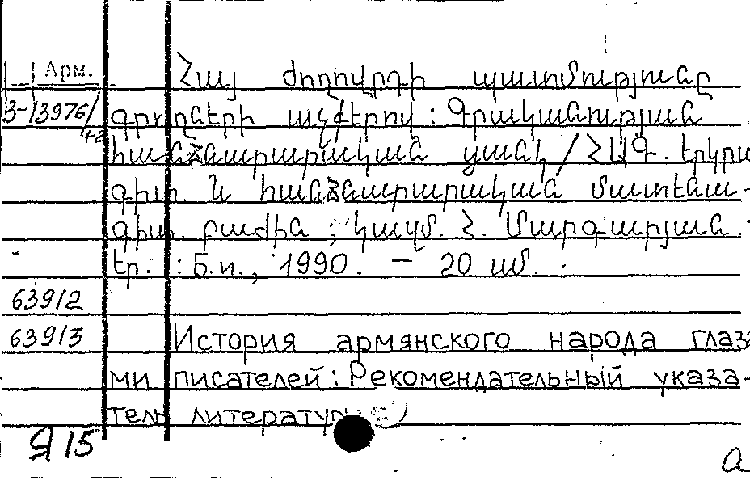 Арм.
Հայ ժողովրդի պատմությունը
3-13976/ գրողների աչքերով : Գրականության
հանձնարարական ցանկ / ՀԱԳ. երկրա-
գիտ. և հանձնարարական մատենա-
գիտ. բաժին ; կազմ. Հ. Մարգարյան
Եր. : Б.и., 1990. — 20 սմ.
63912
63913 История армянского народа глаза
ми писателей: Рекомендательный указа-
тель литературы)
Я15
а